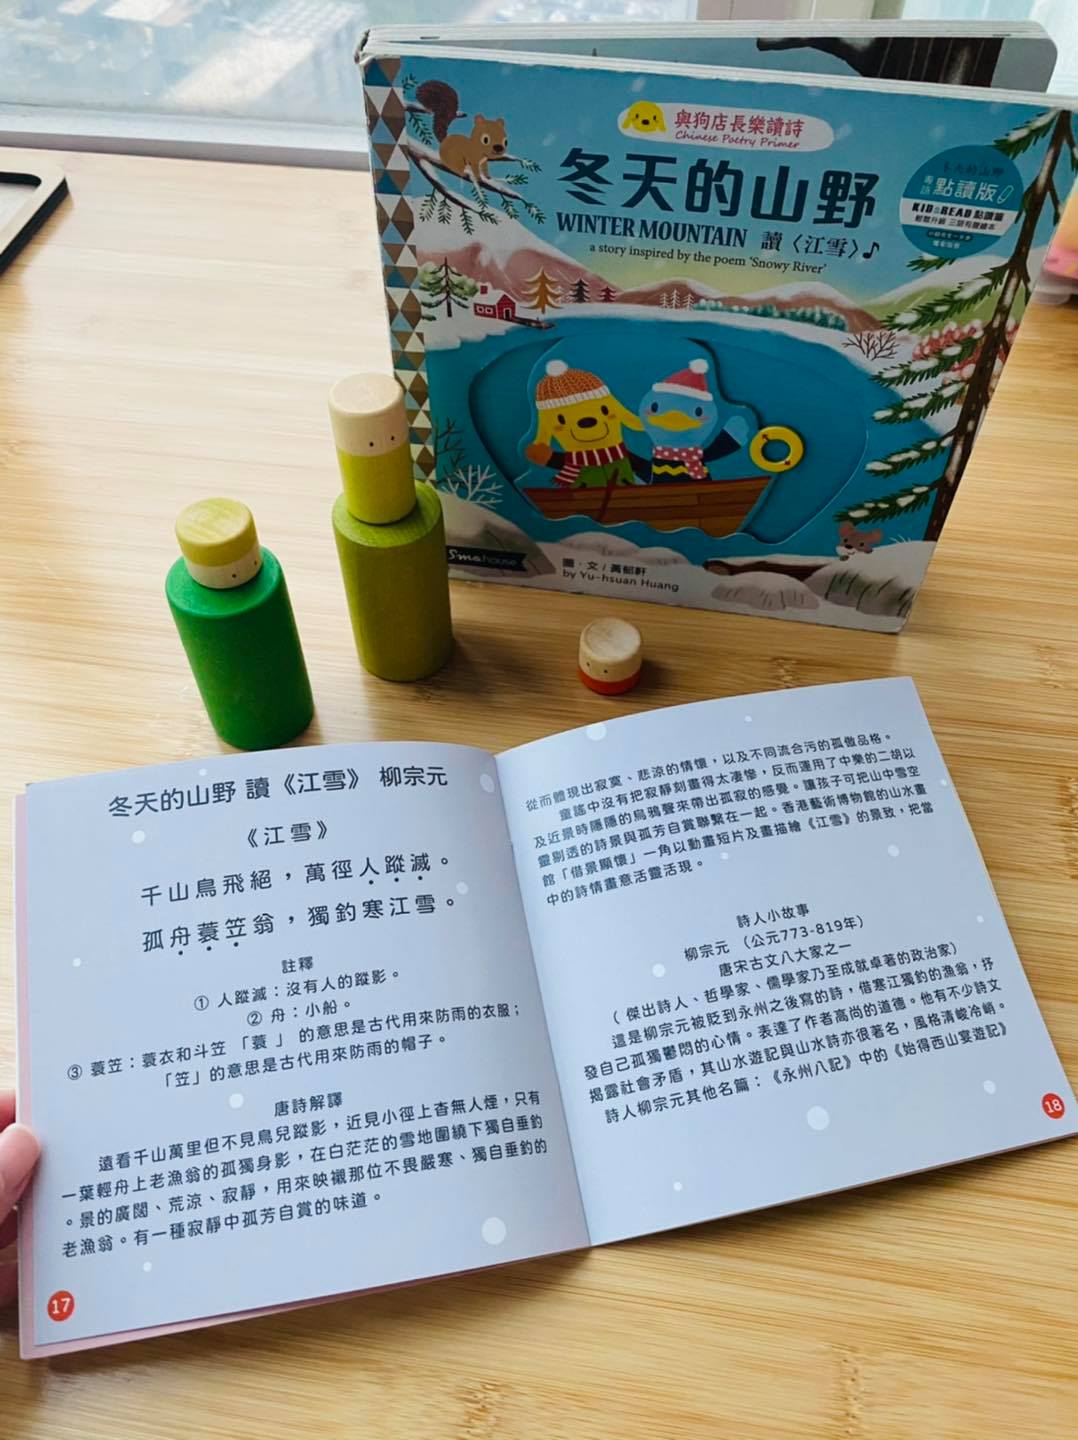 與狗店長樂讀詩
Chinese Poetry Primer
冬天的山野
WINTER MOUNTAIN 讀〈江雪〉♪
a story inspired by the poem ‘Snowy River’
冬天的山野
粵語 點讀版
KIDSREAD 點讀筆
Smahouse
圖・文/黃郁軒
by Yu-hsuan Huang
冬天的山野 讀《江雪》 柳宗元
《江雪》
千山鳥飛絕,萬徑人蹤滅。
孤舟蓑笠翁,獨釣寒江雪。
註釋
① 人蹤滅:沒有人的蹤影。
② 舟:小船。
③ 蓑笠:蓑衣和斗笠 「蓑 」 的意思是古代用來防雨的衣服;
「笠」的意思是古代用來防雨的帽子。
唐詩解譯
遠看千山萬里但不見鳥兒蹤影,近見小徑上杳無人煙,只有
一葉輕舟上老漁翁的孤獨身影,在白茫茫的雪地圍繞下獨自垂釣
。景的廣闊、荒涼、寂靜,用來映襯那位不畏嚴寒、獨自垂釣的
老漁翁。有一種寂靜中孤芳自賞的味道。
17
從而體現出寂寞、悲涼的情懷,以及不同流合污的孤傲品格。
童謠中沒有把寂靜刻畫得太凄慘,反而運用了中樂的二胡以
及近景時隱隱的烏鴉聲來帶出孤寂的感覺。讓孩子可把山中雪空
靈剔透的詩景與孤芳自賞聯繫在一起。香港藝術博物館的山水畫
館「借景顯懷」一角以動畫短片及畫描繪《江雪》的景致,把當
中的詩情畫意活靈活現。
詩人小故事
柳宗元 (公元773-819年)
唐宋古文八大家之一
( 傑出詩人、哲學家、儒學家乃至成就卓著的政治家)
這是柳宗元被貶到永州之後寫的詩,借寒江獨釣的漁翁,抒
發自己孤獨鬱悶的心情。表達了作者高尚的道德。他有不少詩文
揭露社會矛盾,其山水遊記與山水詩亦很著名,風格清峻冷峭。
詩人柳宗元其他名篇:《永州八記》中的《始得西山宴遊記》
18